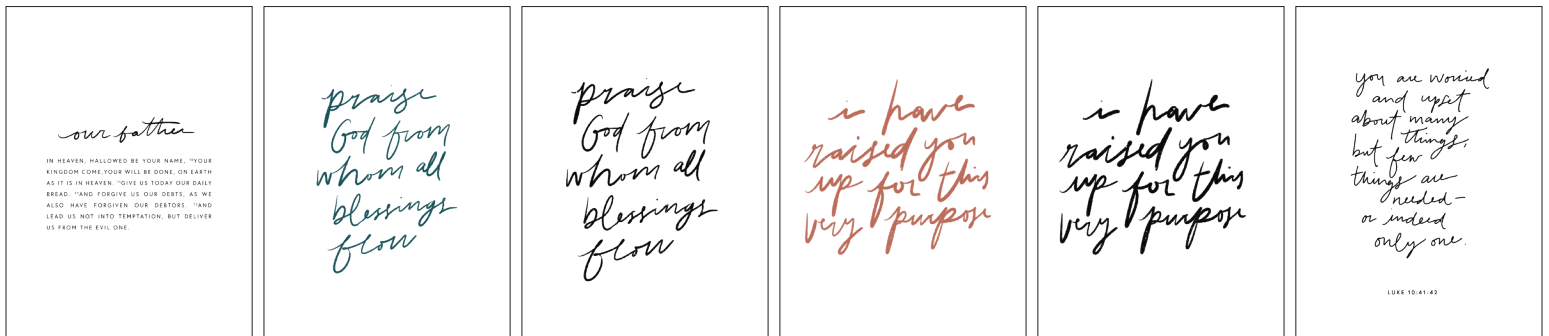 our father
IN HEAVEN, HALLOWED BE YOUR NAME, ¹⁰YOUR
KINGDOM COME,YOUR WILL BE DONE, ON EARTH
AS IT IS IN HEAVEN. ¹¹GIVE US TODAY OUR DAILY
BREAD. ¹²AND FORGIVE US OUR DEBTS, AS WE
ALSO HAVE FORGIVEN OUR DEBTORS. ¹³AND
LEAD US NOT INTO TEMPTATION, BUT DELIVER
US FROM THE EVIL ONE.
praise
God from
whom all
blessings
flow
praise
God from
whom all
blessings
flow
i have
raised you
up for this
very purpose
i have
raised you
up for this
very purpose
you are worried
and upset
about many
things,
but few
things are
needed—
or indeed
only one.
LUKE 10:41-42